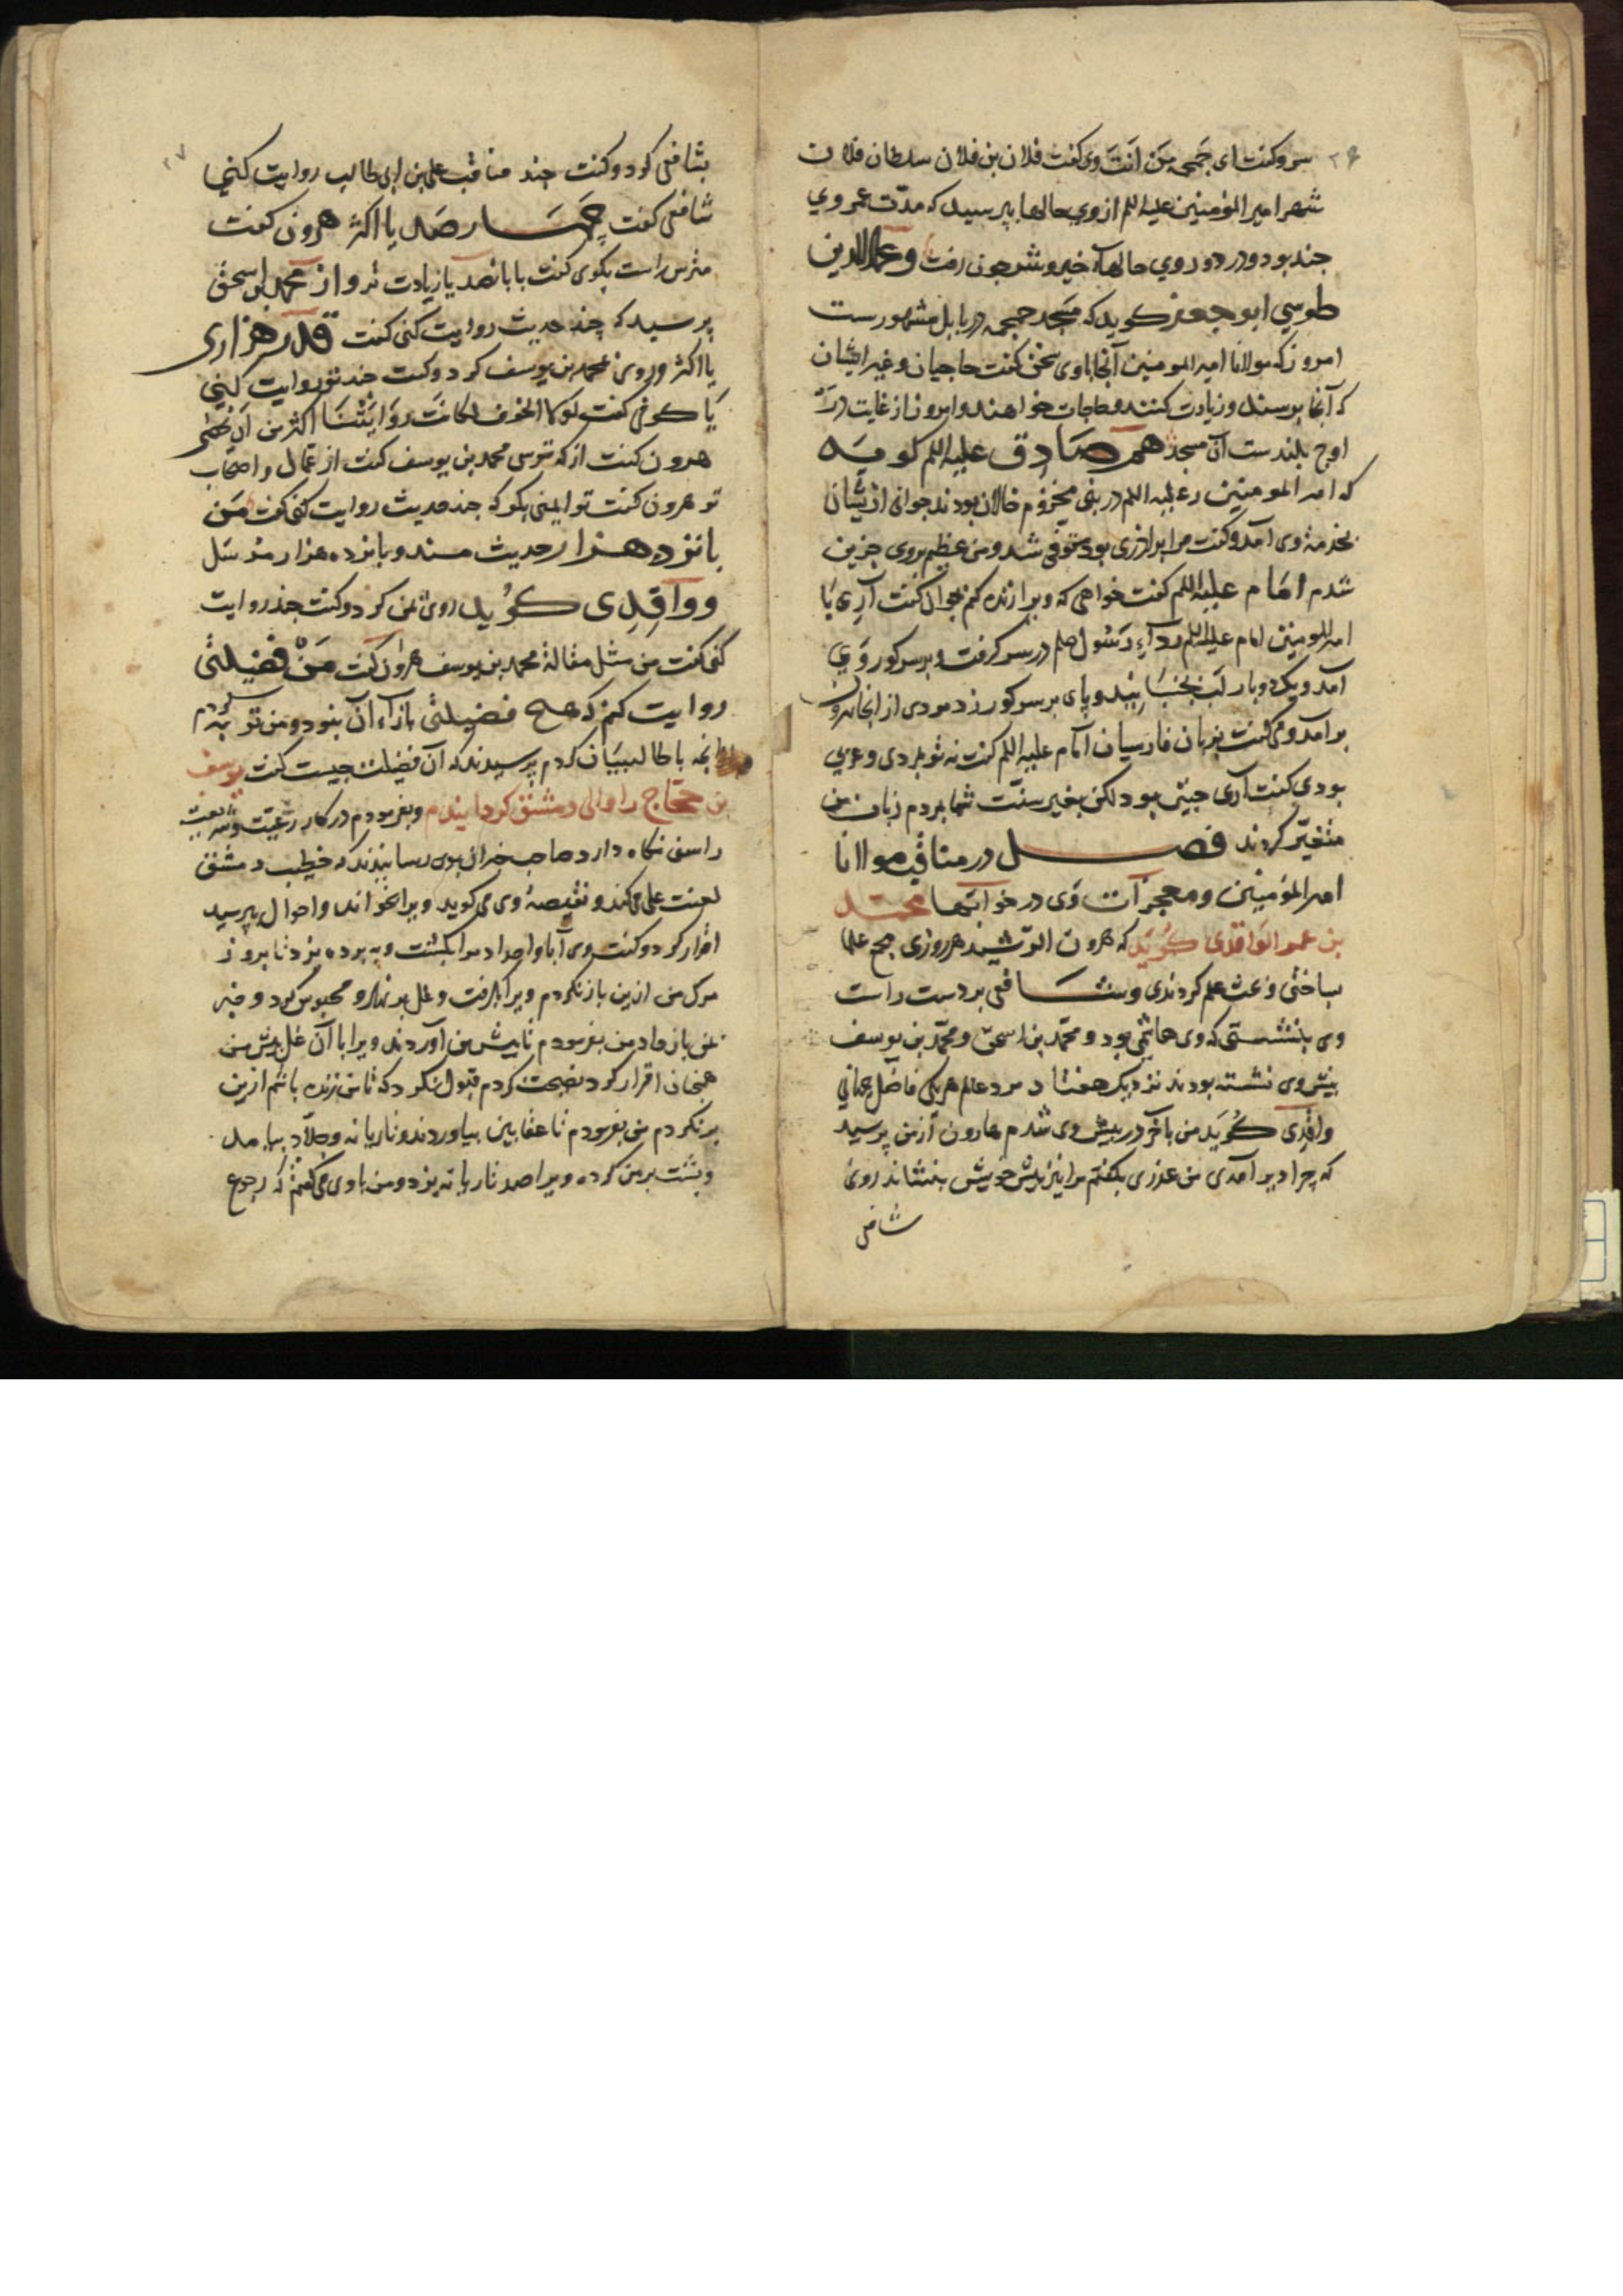 ۲۶
سرو کفت ای جمجمه مَن اَنتَ وی کفت فلان بن فلان سلطان فلان
شهر امیر المؤمنین علیه اللم از وی حالها بپرسید که مدّت عمر وی
جند بود و در دور وی حالها خیر و شر جون رفت و عماد الدین
طوسی ابو جعفر کوید که مسجد جمجمه در بابل مشهورست
امروز که مولانا امیر المومنین آنجا با وی سخن کفت حاجیان و غیر ایشان
که آنجا برسند و زیارت کنند و حاجات خواهند و امروز از غایت
اوج بلندست آن مسجد هم صَادِق علیه اللم کوید
که امیر المومنین را علیه اللم در بنی مخزوم خالان بودند جوانی از یشان
بخدمة وی آمد و کفت مرا برادری بود متوفی شد و من عظیم بروی حزین
شدم امَام علیه اللم کفت خواهی که ویرا زنده کنم جوان کفت آرِی یَا
امیر المومنین امام علیه اللم ردآءِ رَسُول صلعم در سر کرفت و بر سر کور وَی
آمد و یک دو بار لَب بجنبَانید و پای بر سر کور زد مردی از انجا بیرون
بر آمد و می کفت بزبان فارسیان امَام علیه اللم کفت نه تو بمردی و عربی
بودی کفت آری جنین بود لکن بغیر سنّت شما بمردم زبان من
متغیّر کردند فصـل در مناقب مولانا
امیر المؤمنین و معجزَات وَی در خوابَها محمّد
بن عمر الوَاقدی کویَد که هرون الرّشید هر روزی جمع علما
بساختی و بحث علم کردندی و شـافعی بر دست راست
وی بنشستی که وی هاشمی بود و محمّد بن اسحق و محمّد بن یوسف
بیش وی نشسته بودند نزدیک هفتاد مرد عالم هر یکی فاضل جهانی
واقدِی کویَد من بآخر در بیش وی شدم هارون از من پرسید
که چرا دیر آمدی من عذری بکفتم مرا نیز بیش خویش بنشاند روی
شافعی
۲۷
بشافعی کرد و کفت جند مناقب علی بن ابی طالب روایت کنی
شافعی کفت چهَـارصَد یا اکثر هرون کفت
مترس راست بکوی کفت یا بانصد یا زیادت تر و از محمد بن اسحق
پرسید که چند حدیث روایت کنی کفت قدر هزاری
یا اکثر و روی بمحمد بن یوسف کرد و کفت جند تو روایت کنی
یَا کوفی کفت لَوَ لا الخوف لکانَت رِوَایَتنَا اکثر من اَن تُحصٰی
هرون کفت از که ترسی محمد بن یوسف کفت از عمّال و اصحاب
تو هرون کفت تو ایمنی بکو که جند حدیث روایت کنی کفت مَن
بانزده هـزار حدیث مسند و بانزده هزار مرسَل
و واقِدِی کوُید روی بمن کرد و کفت جند روایت
کنی کفت من مثل مقالة محمد بن یوسف هرون کفت مَنْ فضیلتی
روایت کنم که هیچ فضیلتی بازآء آن نبود و من توبه کردم
بآل ابی طالب بیَان کردم پرسیدند که آن فضیلت جیست کفت یوسف
بن حجّاج را والی دمشق کردانیدم و بفرمودم در کار رَعیّت و شریعت
راستی نکاه دارد صاحب خبران بوی رسانیدند که خطیب دمشق
لعنت علی می کند و نقیصهٔ وی می کوید ویرا بخواند و احوال بپرسید
اقرار کرد و کفت وی آبا و اجداد مرا بکشت و بر پرده یزد تا بروز
مرک من ازین باز نکردم ویرا بکرفت و غل بر نهاد و محبوس کرد و خبر
بمن باز داد من بفرمودم تا بیش من آوردند ویرا با آن غل بیش من
همجنان اقرار کرد نصیحت کردم قبول نکرد که تا من زنده باشم ازین
برنکردم من بفرمودم تا عقابین بیاوردند و تازیانه و جلّاد بیامد
و بشت بر من کرده ویرا صد تازیانه بزد و من با وی می کفتم که رجوع